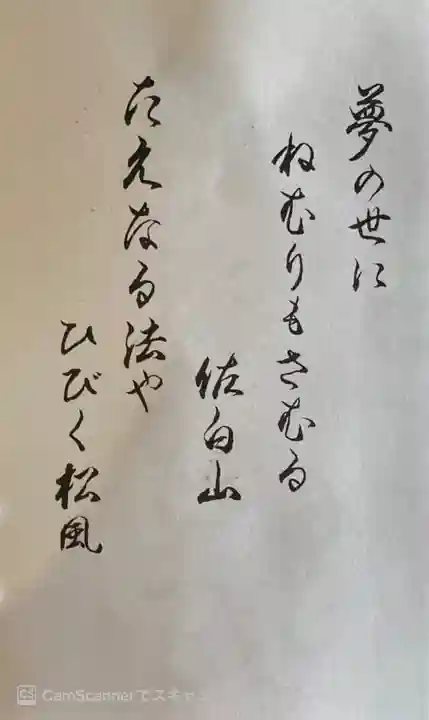 夢の世に
ねむりもさむる
佐白山
たえなる法や
ひびく松風
CS CamScannerでスキャン